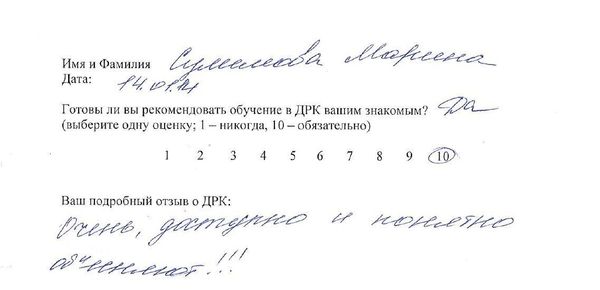 Имя и Фамилия Сумликова Марина
Дата: 14.01.14
Готовы ли вы рекомендовать обучение в ДРК вашим знакомым? Да
(выберите одну оценку; 1 – никогда, 10 – обязательно)
1 2 3 4 5 6 7 8 9 10
Ваш подробный отзыв о ДРК:
Очень, доступно и понятно
объясняют!!!